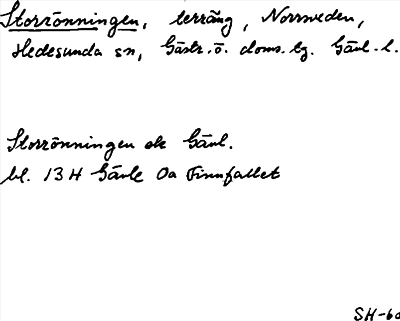 Storrönningen, terräng, Norrsveden,
Hedesunda sn, Gästr. ö. doms. lg. Gävl. l.
Storrönningen ek Gävl.
bl. 13 H Gävle 0a Finnfallet
SH-60